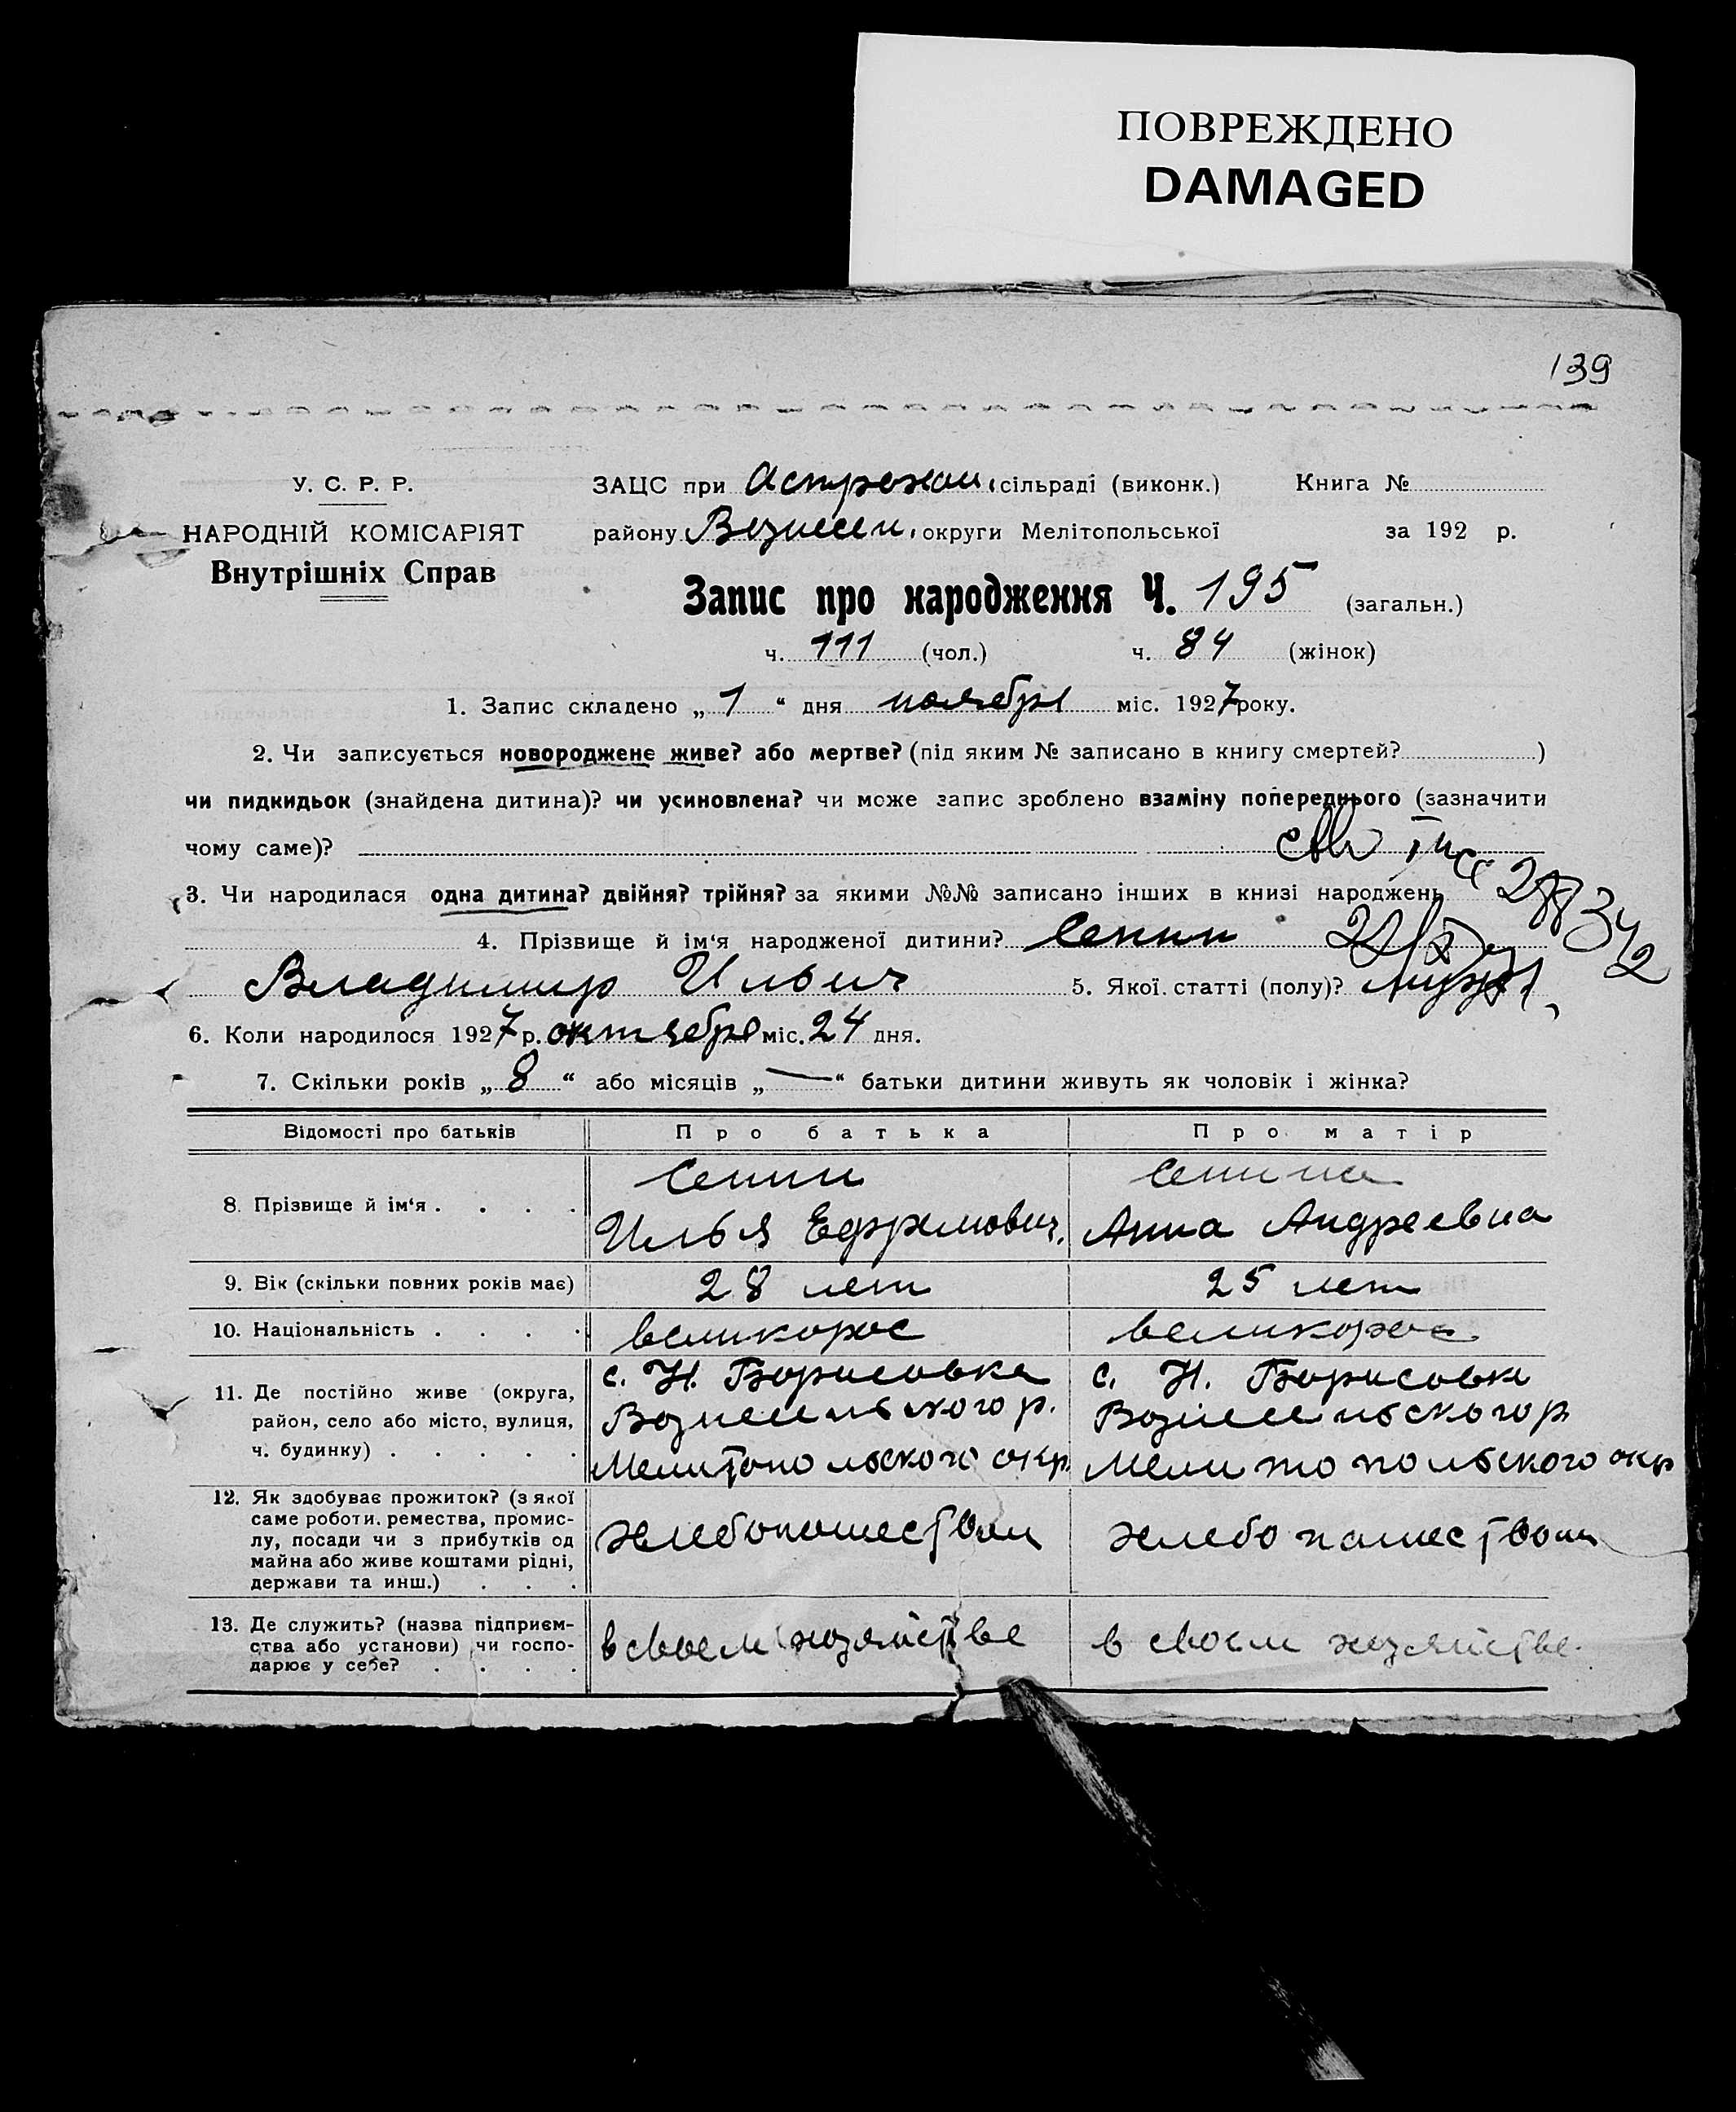 ПОВРЕЖДЕНО
DAMAGED
139
У. С. Р. Р.
НАРОДНІЙ КОМІСАРІЯТ
Внутрішніх Справ
ЗАЦС при Астрахан. сільраді (виконк.) Книга №
району Вознесен. округи Мелітопольської за 192 р.
Запис про народження Ч. 195 (загальн.)
ч. 111 (чол.) ч. 84 (жінок)
1. Запис складено „ 1 “ дня ноября міс. 1927 року.
2. Чи записується новороджене живе? або мертве? (під яким № записано в книгу смертей? )
чи пидкидьок (знайдена дитина)? чи усиновлена? чи може запис зроблено взаміну попереднього (зазначити
чому саме)?
3. Чи народилася одна дитина? двійня? трійня? за якими №№ записано інших в книзі народжень
4. Прізвище й ім‘я народженої дитини? Сенин
Владимир Ильич 5. Якої статті (полу)? мужск.
6. Коли народилося 1927 р. октября міс. 24 дня.
7. Скільки років „ 8 “ або місяців „ — “ батьки дитини живуть як чоловік і жінка?
Відомості про батьків Про батька Про матір
8. Прізвище й ім‘я . . . . Сенин Сенина
Илья Ефремович. Анна Андреевна
9. Вік (скільки повних років має) 28 лет 25 лет
10. Національність . . . . великорос великорос
11. Де постійно живе (округа, район, село або місто, вулиця, ч. будинку) . . . . .
с. Н. Борисовка с. Н. Борисовка
Вознесенського р. Вознесеньского р
Мелитопольского окр. Мелитопольского окр
12. Як здобуває прожиток? (з якої
саме роботи, ремества, промис-
лу, посади чи з прибутків од
майна або живе коштами рідні,
держави та инш.) . . .
хлебопашеством хлебопашеством
13. Де служить? (назва підприєм-
ства або установи) чи госпо-
дарює у себе? . . . .
в своем хозяйстве в своем хозяйстве.